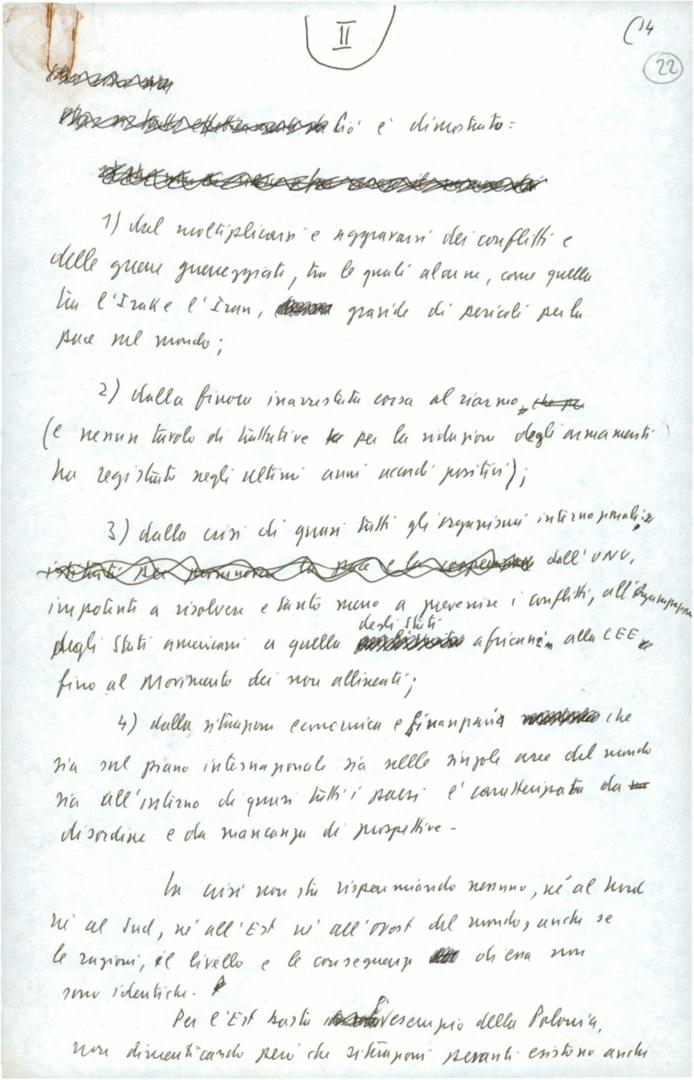 II
14
22
Ciò è dimostrato:
1) dal moltiplicarsi e aggravarsi dei conflitti e
delle guerre guerreggiate, tra le quali alcune, come quella
tra l'Irak e l'Iran, gravide di pericoli per la
pace nel mondo;
2) dalla finora inarrestata corsa al riarmo,
(e nessun tavolo di trattative per la riduzione degli armamenti
ha registrato negli ultimi anni accordi positivi);
3) dalla crisi di quasi tutti gli organismi internazionali:
istituiti per promuovere la pace e la cooperazione dall'ONU,
impotenti a risolvere e tanto meno a prevenire i conflitti, all'Organizzazione
degli Stati americani a quella degli Stati africani, alla CEE
fino al Movimento dei non allineati;
4) dalla situazione economica e finanziaria che
sia sul piano internazionale sia nelle singole aree del mondo
sia all'interno di quasi tutti i paesi è caratterizzata da
disordine e da mancanza di prospettive -
La crisi non sta risparmiando nessuno, né al Nord
né al Sud, né all'Est né all'Ovest del mondo, anche se
le ragioni, il livello e le conseguenze di essa non
sono identiche.
Per l'Est basta l'esempio della Polonia,
non dimenticando però che situazioni pesanti esistono anche